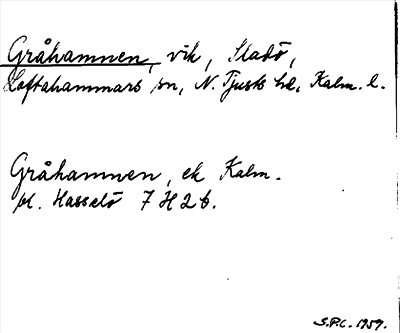 Gråhamnen, vik, Sladö,
Loftahammars sn, N. Tjusts hd, Kalm. l.
Gråhamnen, ek Kalm.
bl. Hasselö 7 H 2 b.
S.P.C. 1959.